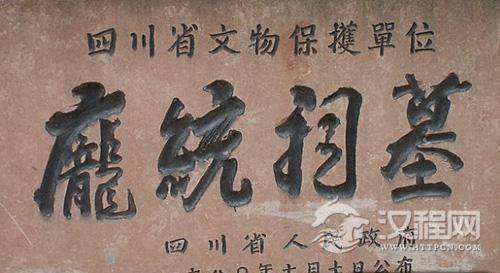 四川省文物保擭單位
龐統祠墓
四川省人民政府
八〇年 月 日公布
汉程网
WWW.HTTPCN.COM